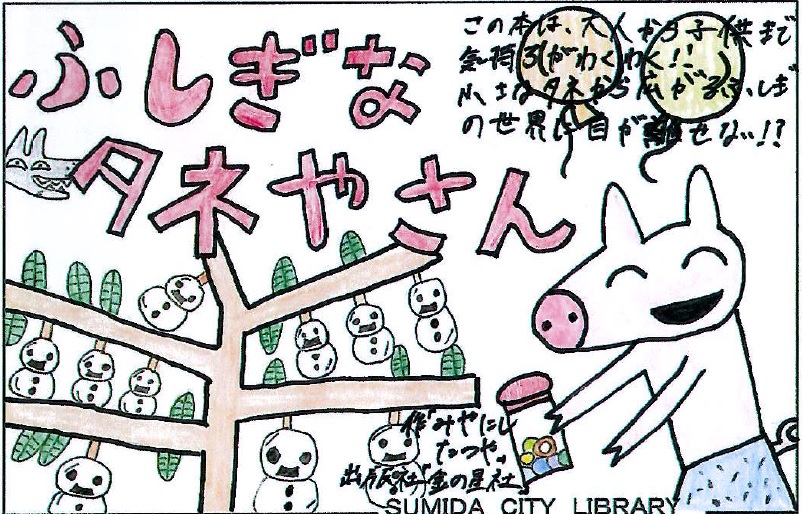 ふしぎな
タネやさん
この本は、大人から子供まで
気持ちがわくわく!!
小さなタネから広がるふしぎ
の世界に目が離せない!?
作『みやにし
たつや』
出版社『金の星社』
SUMIDA CITY LIBRARY